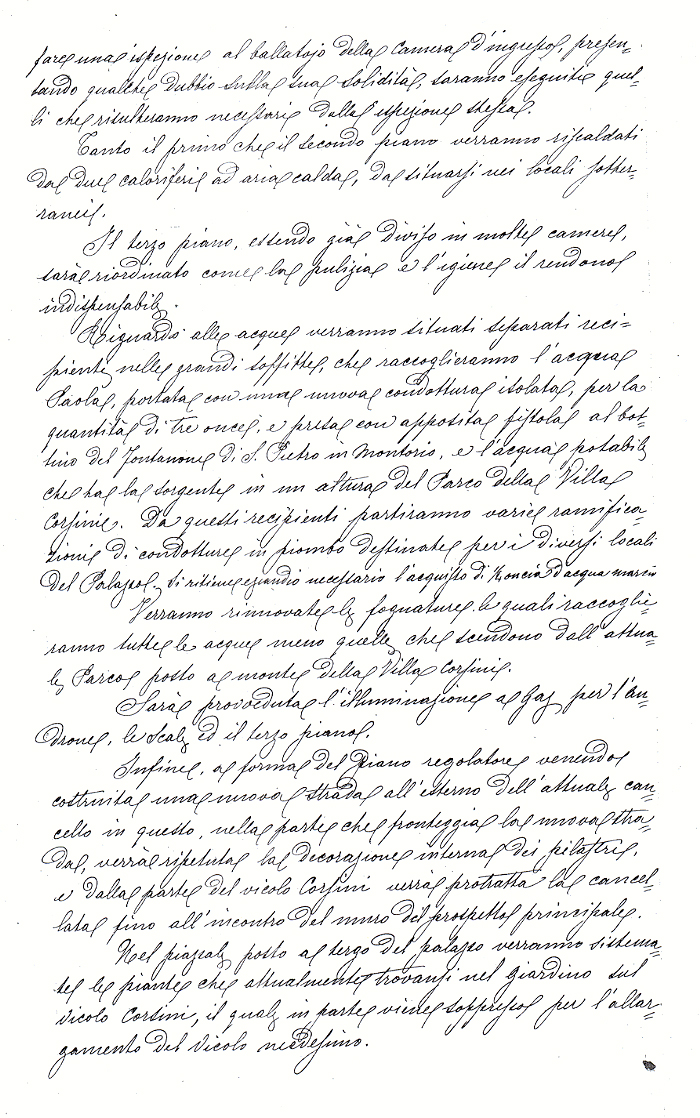 fare una ispezione al ballatojo della Camera d'ingresso, presen-
tando qualche dubbio sulla sua solidità, saranno eseguiti quel-
li che risulteranno necessarii dalla ispezione stessa.
Tanto il primo che il secondo piano verranno riscaldati
da due caloriferi ad aria calda, da situarsi nei locali sotter-
ranei.
Il terzo piano, essendo già diviso in molte camere,
sarà riordinato come la pulizia e l'igiene il rendono
indispensabile.
Riguardo alle acque verranno situati separati reci=
pienti nelle grandi soffitte, che raccoglieranno l'acqua
Paola, portata con una nuova conduttura isolata, per la
quantità di tre once, e presa con apposita fistola al bot-
tino del Fontanone di S. Pietro in Montorio, e l'acqua potabile
che ha la sorgente in un altura del Parco della Villa
Corsini. Da questi recipienti partiranno varie ramifica-
zioni di condutture in piombo destinate per i diversi locali
del Palazzo. Si ritiene eziandio necessario l'acquisto di oncia d'acqua marcia
Verranno rinnovate le fognature le quali raccoglie-
ranno tutte le acque meno quelle che scendono dall'attua-
le Parco posto a monte della Villa Corsini.
Sarà provveduta l'illuminazione a Gaz per l'an-
drone, le scale ed il terzo piano.
Infine, a forma del Piano regolatore venendo
costruita una nuova strada all'esterno dell'attuale can-
cello in questo, nella parte che fronteggia la nuova stra-
da, verrà ripetuta la decorazione interna dei pilastri,
e dalla parte del vicolo Corsini verrà protratta la cancel-
lata fino all'incontro del muro del prospetto principale.
Nel piazzale posto a tergo del palazzo verranno sistema-
te le piante che attualmente trovansi nel giardino sul
vicolo Corsini, il quale in parte viene soppresso per l'allar-
gamento del Vicolo medesimo.